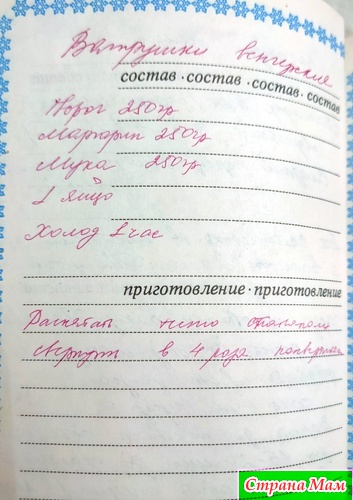 Ватрушки венгерские
состав · состав · состав · состав
Творог 250гр
Маргарин 250гр
Мука 250гр
1 яйцо
Холод 1 час
приготовление · приготовление
тесто
свернуть в 4 раза
Страна Мам